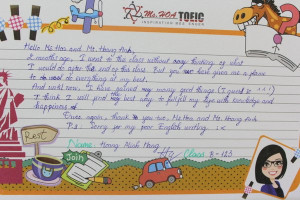 Ms HOA TOEIC
Hello Ms Hoa and Mr. Hoang Anh,
2 months ago, I went to the class without any thinking of what
I would do after the end of the class. But you
to do everything of my best.
And until now, I have gained many good things (I guess is !!!)
I think I will find the best way to fulfill my life with knowledge and
happiness
Once again, thank to you two, Ms Hoa and Mr. Hoang Anh
P.S: Sorry for my poor English writing
Name: Hoang Minh Hang
Class: B-123
Rest
Join